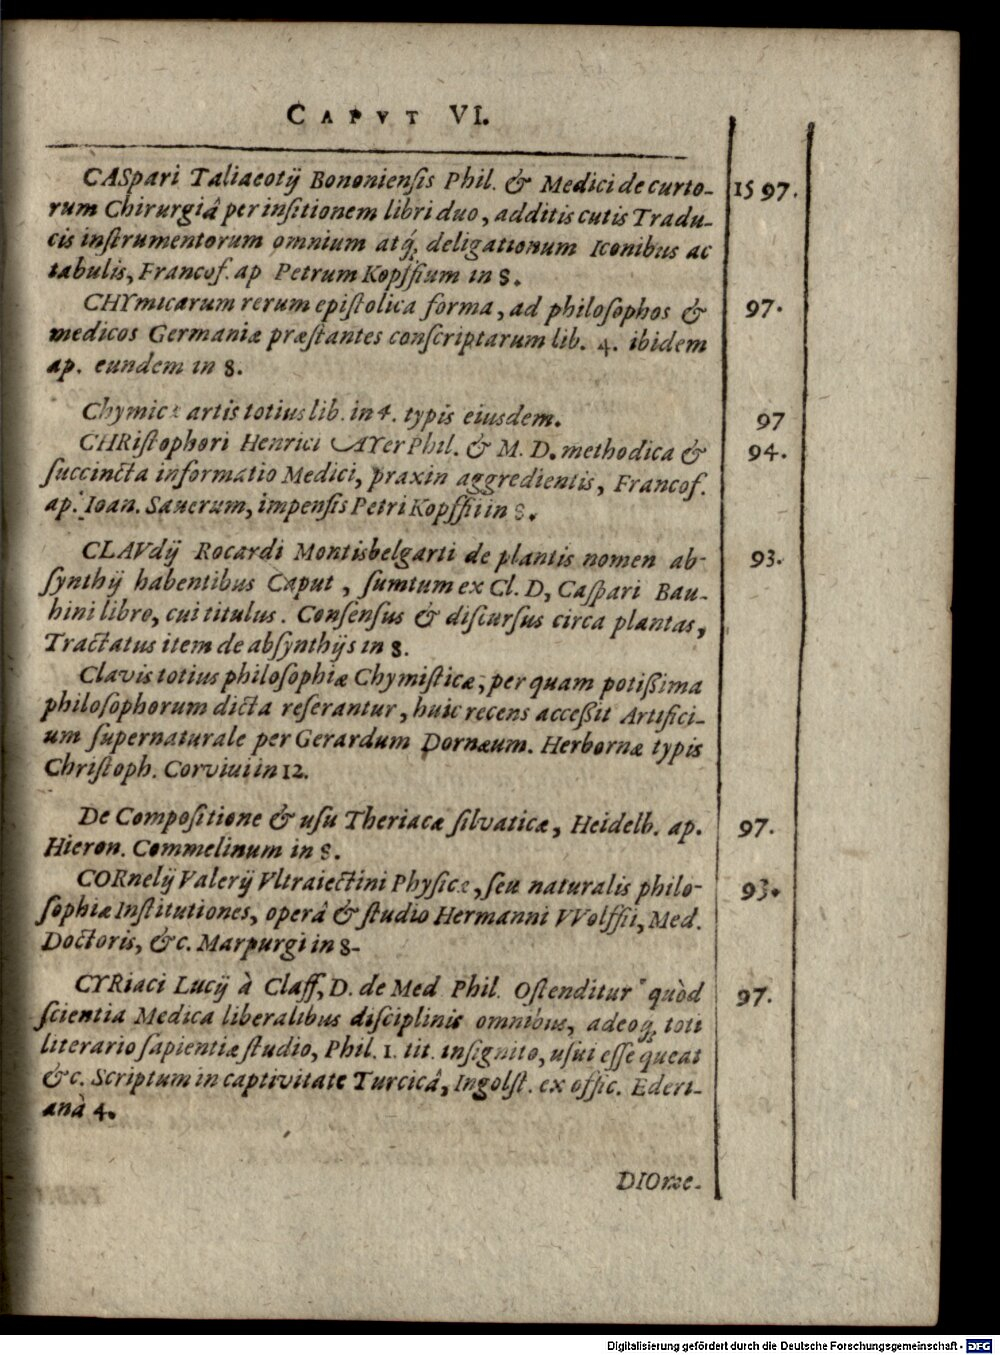 CAPVT VI.
CASpari Taliacotij Bononienſis Phil. & Medici de curto- 1597.
rum Chirurgiâ per inſitionem libri duo, additis cutis Tradu-
cis inſtrumentorum omnium atq́; deligationum Iconibus ac
tabulis, Francof. ap Petrum Kopffium in 8.
CHYmicarum rerum epiſtolica forma, ad philoſophos & 97.
medicos Germaniæ præſtantes conſcriptarum lib. 4. ibidem
ap. eundem in 8.
Chymicæ artis totius lib. in 4. typis eiusdem. 97
CHRiſtophori Henrici AYer Phil. & M. D. methodica & 94.
ſuccincta informatio Medici, praxin aggredientis, Francof.
ap. Ioan. Sauerum, impenſis Petri Kopffii in 8.
CLAVdij Rocardi Montisbelgarti de plantis nomen ab- 93.
ſynthij habentibus Caput, ſumtum ex Cl. D, Caſpari Bau-
hini libro, cui titulus. Conſenſus & diſcurſus circa plantas,
Tractatus item de abſynthijs in 8.
Clavis totius philoſophiæ Chymiſticæ, per quam potißima
philoſophorum dicta referantur, huic recens acceßit Artifici-
um ſupernaturale per Gerardum Dornæum. Herbornæ typis
Chriſtoph. Corviui in 12.
De Compoſitione & uſu Theriacæ ſilvaticæ, Heidelb. ap. 97.
Hieron. Commelinum in 8.
CORnelij Valerij Vltraiectini Phyſicæ, ſeu naturalis philo- 93.
ſophiæ Inſtitutiones, operâ & ſtudio Hermanni VVolffii, Med.
Doctoris, &c. Marpurgi in 8-
CYRiaci Lucij à Claff, D. de Med Phil. Oſtenditur quòd 97.
ſcientia Medica liberalibus diſciplinis omnibus, adeoq; toti
literario ſapientiæ ſtudio, Phil. 1. tit. inſignito, uſui eſſe queat
&c. Scriptum in captivitate Turcicâ, Ingolſt. ex offic. Ederi-
anà 4.
DIOme-
Digitalisierung gefördert durch die Deutsche Forschungsgemeinschaft - DFG